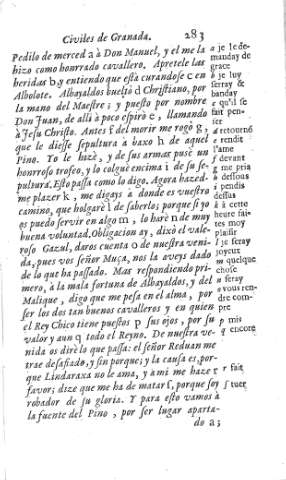 Civiles de Granada. 283
Pedilo de merced a à Don Manuel, y el me la
hizo como honrrado cavallero. Apretele las
heridas b y entiendo que està curandose c en
Albolote. Albayaldos bueltò d Christiano, por
la mano del Maestre; y puesto por nombre
Don Juan, de alli à poco espirò e, llamando
à Jesu Christo. Antes f del morir me rogò g,
que le diesse sepultura à baxo h de aquel
Pino. Yo le hizè, y de sus armas puse un
honrroso trofeo, y lo colguè encima i de su se-
pultura. Esto passa como lo digo. Agora hazed-
me plazer k, me digays à donde es vuestro
camino, que holgarè l de saberlo; porque si yo
os puedo servir en algo m, lo harè n de muy
buena voluntad. Obligacion ay, dixò el vale-
roso Gazul, daros cuenta o de nuestra veni-
da, pues vos señor Muça, nos la aveys dado
de lo que ha passado. Mas respondiendo pri-
mero, à la mala fortuna de Albayaldos, y del
Malique, digo que me pesa en el alma, por
ser los dos tan buenos cavalleros y en quien
el Rey Chico tiene puestos p sus ojos, por su
valor y aun q todo el Reyno. De nuestra ve-
nida os dirè lo que passa: el señor Reduan me
trae desafiado, y sin porque; y la causa es, por-
que Lindaraxa no le ama, y à mi me haze r
favor; dize que me ha de matar s, porque soy
robador de su gloria. Y para esto vamos à
la fuente del Pino, por ser lugar aparta-
do
a je le de-
manday de
grace
b je luy
serray &
banday
c qu'il se
fait pen-
ser
d retourné
e rendit
l'ame
f devant
g me pria
h dessous
i pendis
dessus
k à cette
heure fai-
tes moy
plaisir
l je seray
joyeux
m quelque
chose
n feray
o vous ren-
dre com-
pte
p mis
q encore
r fait
s tuer
a;